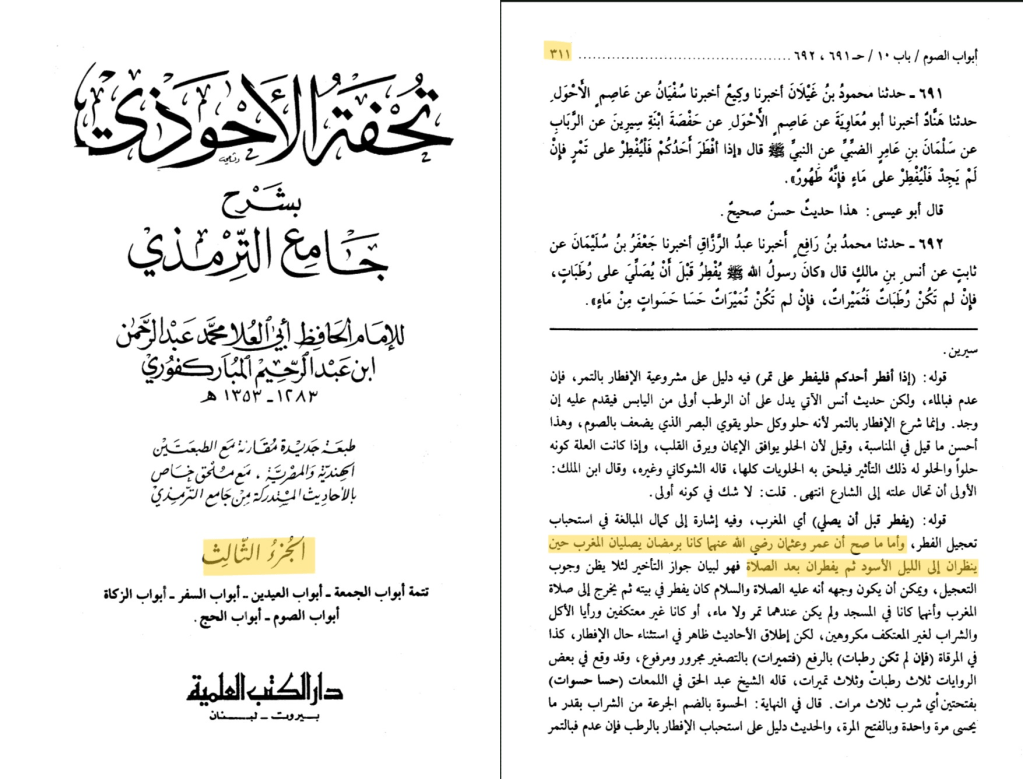 تحفة الأحوذي
بشرح
جامع الترمذي
للإمام الحافظ أبي العلا محمد عبد الرحمن
ابن عبد الرحيم المباركفوري
١٢٨٣ - ١٣٥٣ هـ
طبعة جديدة مقارنة مع الطبعتين
الهندية والمصرية ، مع ملحق خاص
بالأحاديث المستدركة من جامع الترمذي
الجزء الثالث
تتمة أبواب الجمعة - أبواب العيدين - أبواب السفر - أبواب الزكاة
أبواب الصوم - أبواب الحج .
دار الكتب العلمية
بيروت - لبنان
أبواب الصوم / باب ١٠ / حـ ٦٩١ ، ٦٩٢ ........................................ ٣١١
٦٩١ - حدثنا محمودُ بنُ غَيْلَانَ أخبرنا وكيعٌ أخبرنا سُفْيَانُ عن عاصِمٍ الأَحْوَلِ.
حدثنا هَنَّادٌ أخبرنا أبو مُعَاوِيَةَ عن عاصِمٍ الأَحْوَلِ عن حَفْصَةَ ابْنَةِ سِيرِينَ عن الرَّبَابِ
عن سَلْمَانَ بنِ عَامِرٍ الضبِّيِّ عن النبيِّ ﷺ قال «إذا أَفْطَرَ أَحَدُكُمْ فَلْيُفْطِرْ على تَمْرٍ فإنْ
لَمْ يَجِدْ فَلْيُفْطِرْ على مَاءٍ فإنَّهُ طَهُورٌ».
قال أبو عيسى: هذا حديثٌ حسنٌ صحيحٌ.
٦٩٢ - حدثنا محمدُ بنُ رَافِعٍ أخبرنا عبدُ الرَّزَّاقِ أخبرنا جَعْفَرُ بنُ سُلَيْمَانَ عن
ثابتٍ عن أنسِ بنِ مالكٍ قال «كانَ رسولُ الله ﷺ يُفْطِرُ قَبْلَ أَنْ يُصَلِّيَ على رُطَبَاتٍ،
فإنْ لم تَكُنْ رُطَبَاتٌ فَتُمَيْرَاتٌ، فإنْ لم تَكُنْ تُمَيْرَاتٌ حَسَا حَسَوَاتٍ مِنْ مَاءٍ».
سيرين.
قوله: (إذا أفطر أحدكم فليفطر على تمر) فيه دليل على مشروعية الإفطار بالتمر، فإن
عدم فبالماء، ولكن حديث أنس الآتي يدل على أن الرطب أولى من اليابس فيقدم عليه إن
وجد. وإنما شرع الإفطار بالتمر لأنه حلو وكل حلو يقوي البصر الذي يضعف بالصوم، وهذا
أحسن ما قيل في المناسبة، وقيل لأن الحلو يوافق الإيمان ويرق القلب، وإذا كانت العلة كونه
حلواً والحلو له ذلك التأثير فيلحق به الحلويات كلها، قاله الشوكاني وغيره، وقال ابن الملك:
الأولى أن تحال علته إلى الشارع انتهى. قلت: لا شك في كونه أولى.
قوله: (يفطر قبل أن يصلي) أي المغرب، وفيه إشارة إلى كمال المبالغة في استحباب
تعجيل الفطر، وأما ما صح أن عمر وعثمان رضي الله عنهما كانا برمضان يصليان المغرب حين
ينظران إلى الليل الأسود ثم يفطران بعد الصلاة فهو لبيان جواز التأخير لئلا يظن وجوب
التعجيل، ويمكن أن يكون وجهه أنه عليه الصلاة والسلام كان يفطر في بيته ثم يخرج إلى صلاة
المغرب وأنهما كانا في المسجد ولم يكن عندهما تمر ولا ماء، أو كانا غير معتكفين ورأيا الأكل
والشراب لغير المعتكف مكروهين، لكن إطلاق الأحاديث ظاهر في استثناء حال الإفطار، كذا
في المرقاة (فإن لم تكن رطبات) بالرفع (فتميرات) بالتصغير مجرور ومرفوع، وقد وقع في بعض
الروايات ثلاث رطبات وثلاث تميرات، قاله الشيخ عبد الحق في اللمعات (حسا حسوات)
بفتحتين أي شرب ثلاث مرات. قال في النهاية: الحسوة بالضم الجرعة من الشراب بقدر ما
يحسى مرة واحدة وبالفتح المرة، والحديث دليل على استحباب الإفطار بالرطب فإن عدم فبالتمر